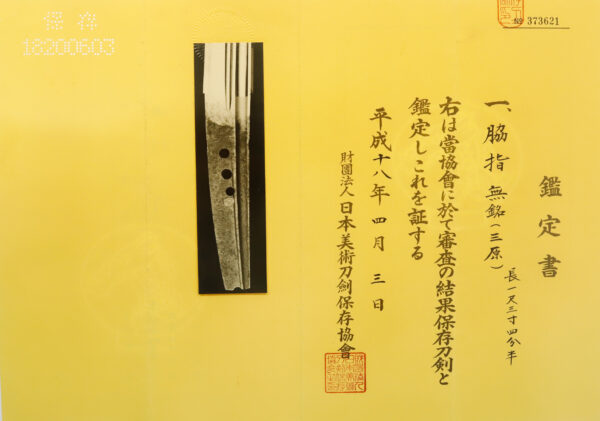 № 373621
保存
18200603
鑑定書
一、脇指 無銘(三原)
長一尺三寸四分半
右は當協會に於て審査の結果保存刀剣と
鑑定しこれを証する
平成十八年四月三日
財團法人日本美術刀劍保存協會